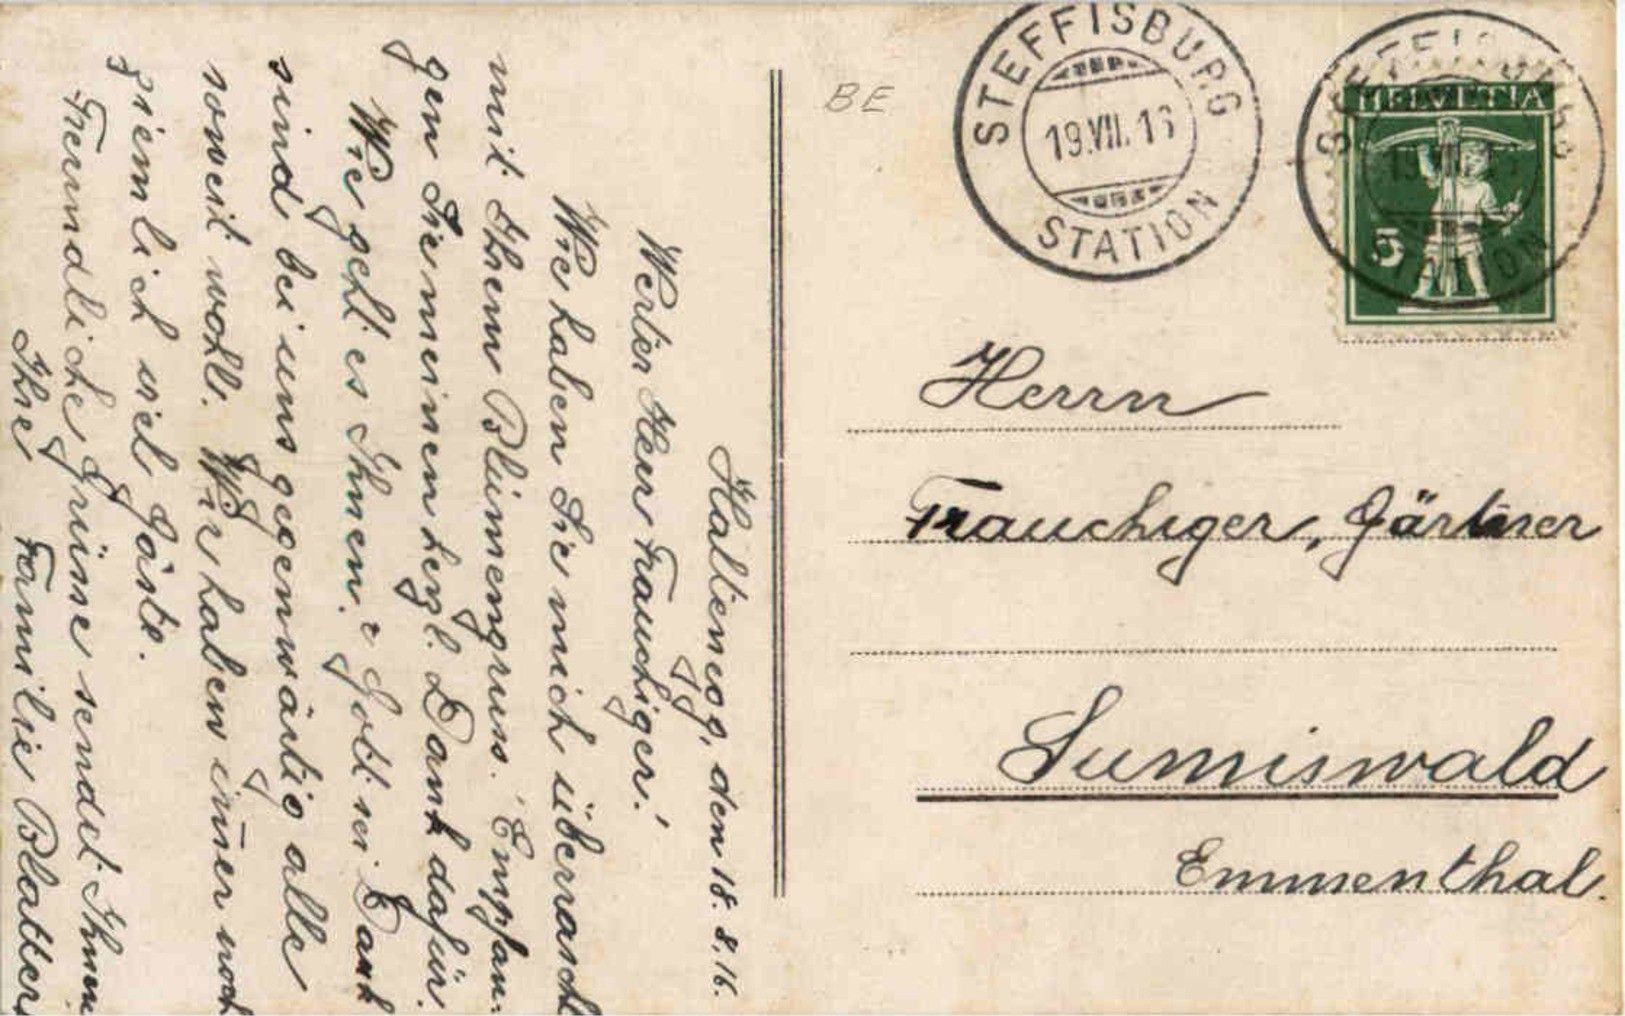 Halteneg, den 18. 8. 16.
Werter Herr Trauchiger!
Wie haben Sie mich überrascht
mit Ihrem Blumengruss. Empfan-
gen Sie meinen herzl. Dank dafür.
Wie geht es Ihnen? Gott sei Dank
sind bei uns gegenwärtig alle
soweit wohl. Wir haben imer noch
ziemlich viel Gäste.
Freundliche Grüsse sendet Ihnen
Ihre Familie Blatter
BE
STEFFISBURG
19.VII.16
STATION
STEFFISBURG
STATION
HELVETIA
5
Herrn
Trauchiger, Gärtner
Sumiswald
Emmenthal.